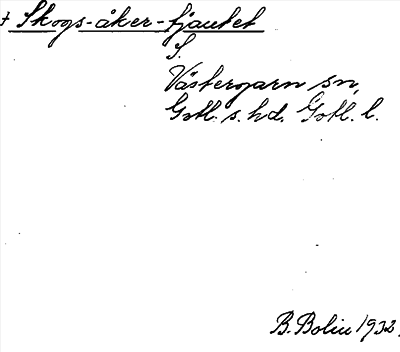 † Skogs-åker-fjautet
S.
Västergarn sn,
Gotl. s. hd. Gotl. l.
B. Bolin 1932.